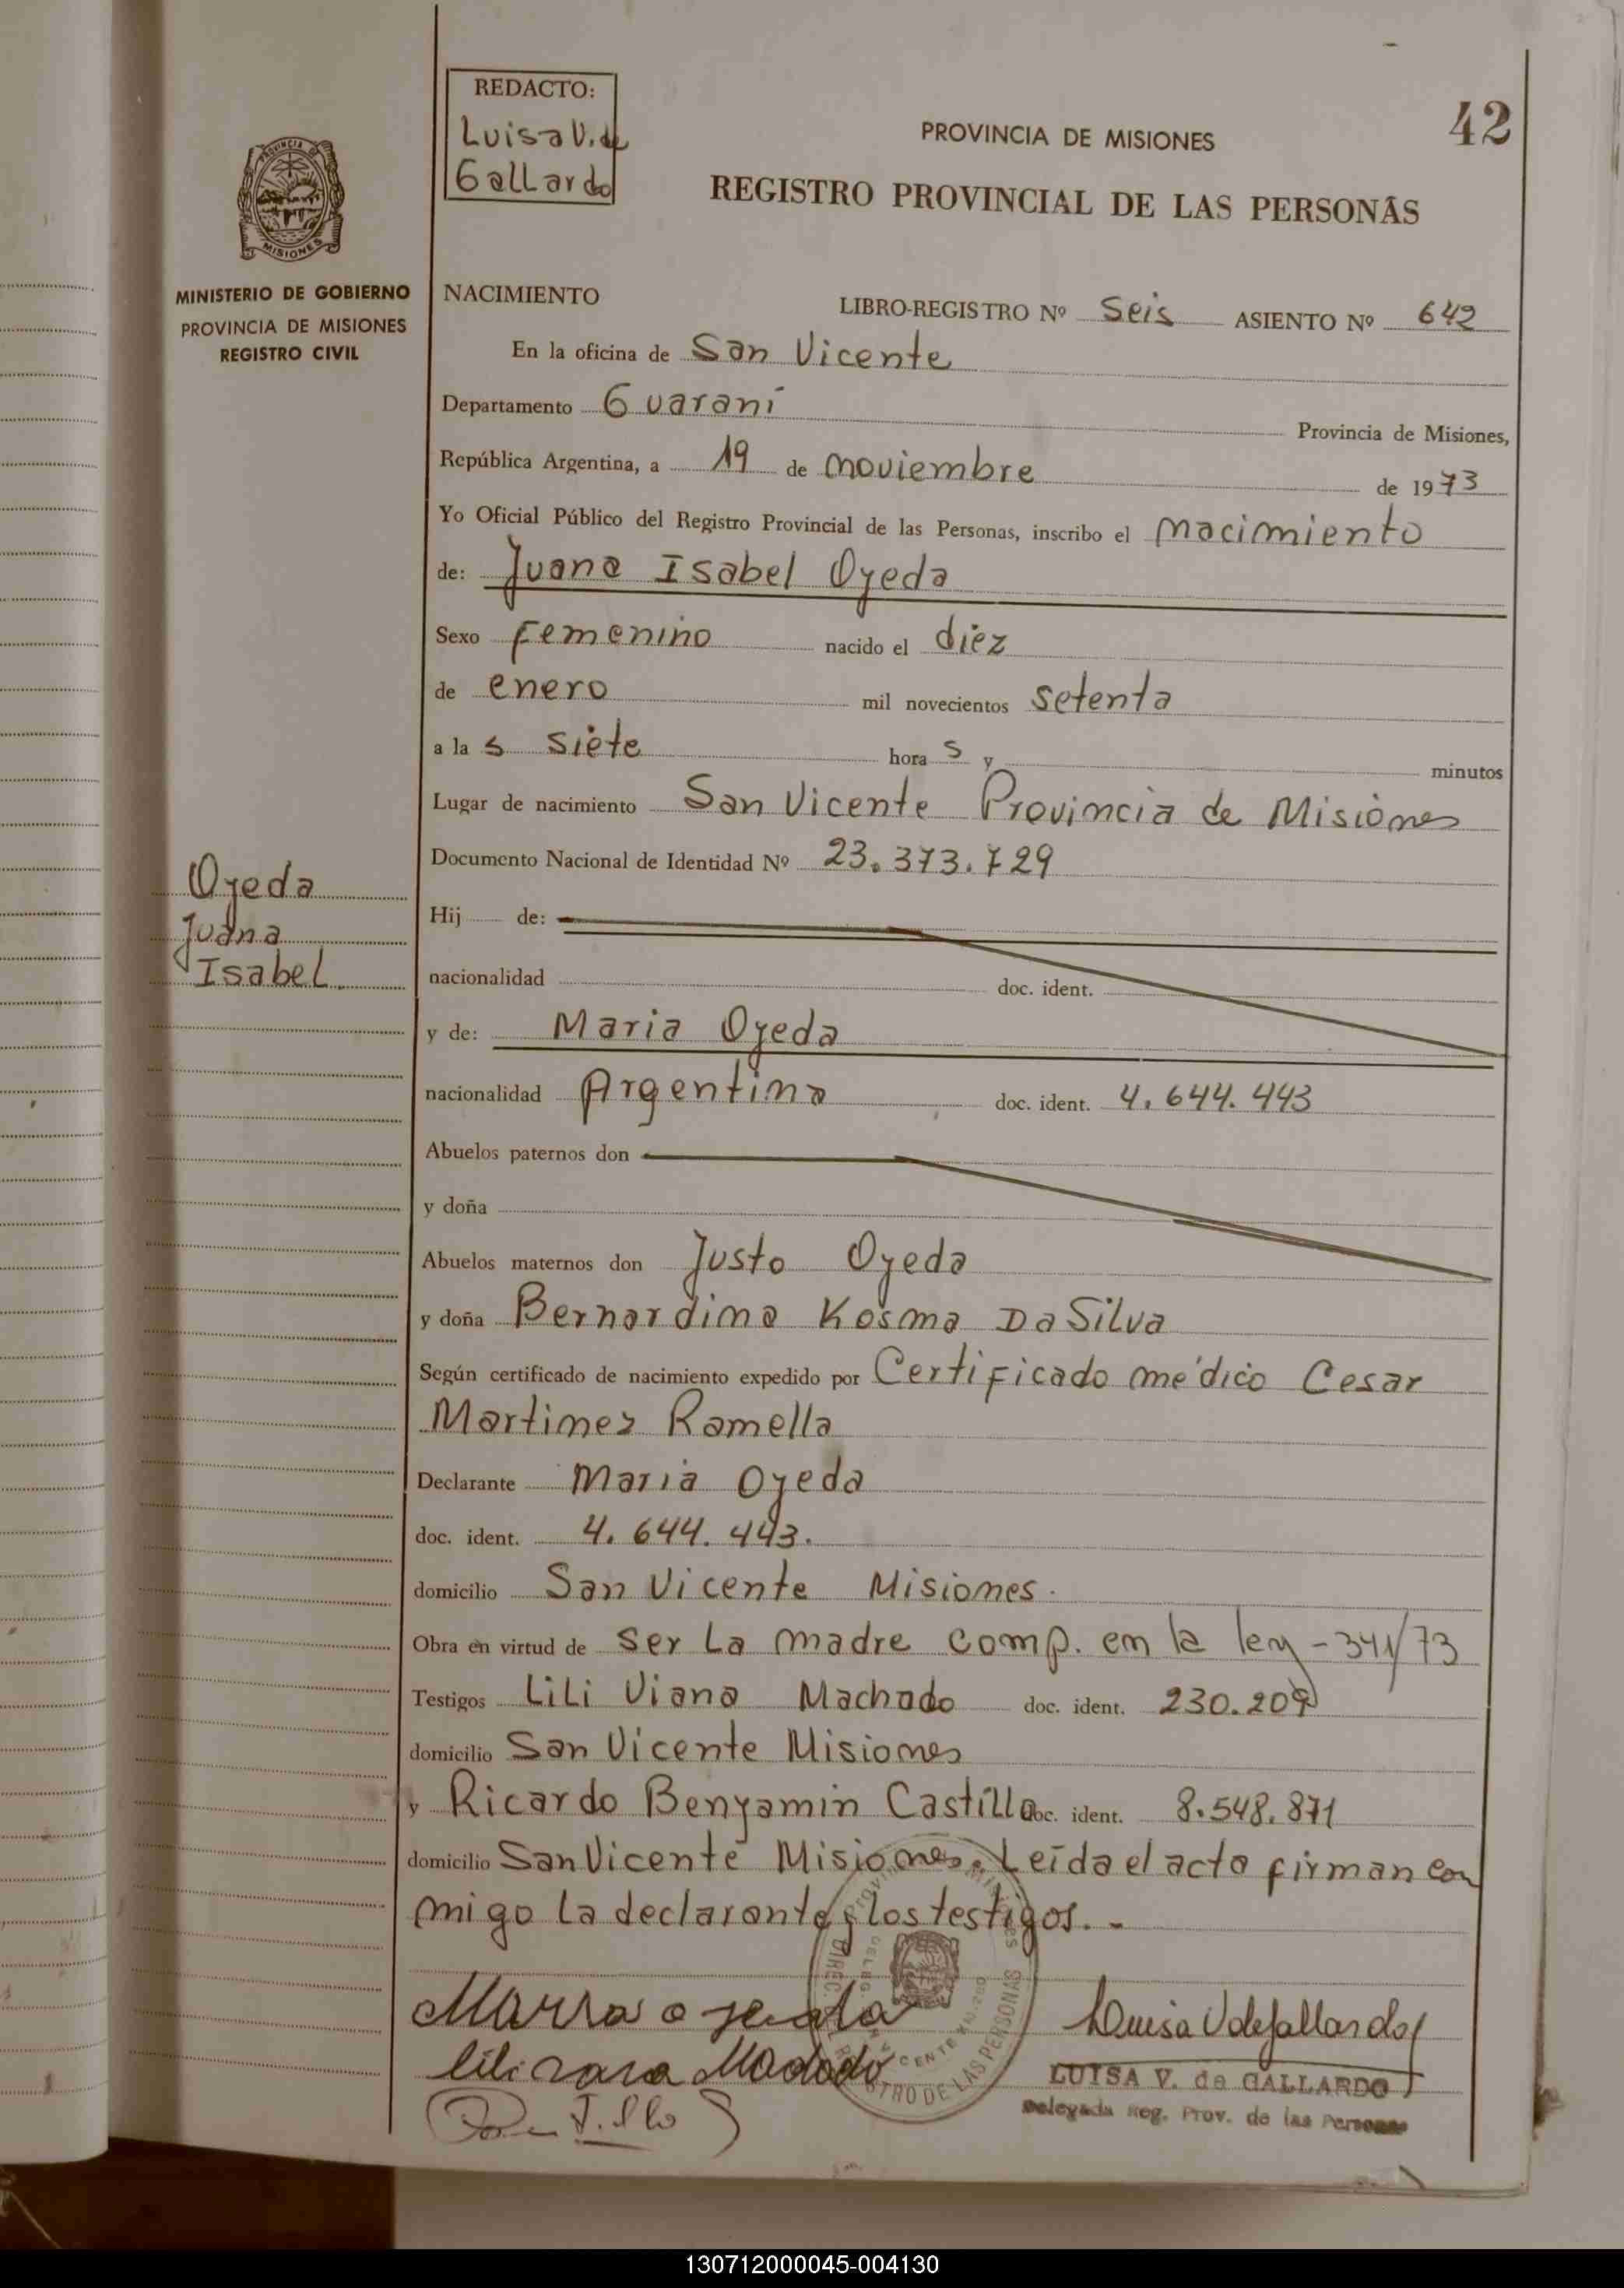 REDACTO:
Luisa V. de
Gallardo
PROVINCIA DE MISIONES
42
REGISTRO PROVINCIAL DE LAS PERSONAS
PROVINCIA DE
MISIONES
MINISTERIO DE GOBIERNO
PROVINCIA DE MISIONES
REGISTRO CIVIL
NACIMIENTO
LIBRO-REGISTRO Nº Seis ASIENTO Nº 642
En la oficina de San Vicente
Departamento Guaraní
Provincia de Misiones,
República Argentina, a 19 de noviembre de 1973
Yo Oficial Público del Registro Provincial de las Personas, inscribo el nacimiento
de: Juana Isabel Ojeda
Sexo Femenino nacido el diez
de enero mil novecientos setenta
a la s siete hora s y minutos
Lugar de nacimiento San Vicente Provincia de Misiones
Documento Nacional de Identidad Nº 23.373.729
Ojeda
Juana
Isabel.
Hij de:
nacionalidad doc. ident.
y de: Maria Ojeda
nacionalidad Argentina doc. ident. 4.644.443
Abuelos paternos don
y doña
Abuelos maternos don Justo Ojeda
y doña Bernardina Kosma Da Silva
Según certificado de nacimiento expedido por Certificado médico Cesar
Martinez Ramella
Declarante Maria Ojeda
doc. ident. 4.644.443.
domicilio San Vicente Misiones.
Obra en virtud de ser La madre comp. en la ley - 341/73
Testigos Lili Viana Machado doc. ident. 230.209
domicilio San Vicente Misiones
y Ricardo Benyamin Castillo doc. ident. 8.548.871
domicilio San Vicente Misiones. Leída el acta firman con
migo la declarante y los testigos. -
Luisa V de Gallardo
LUISA V. de GALLARDO
Delegada Reg. Prov. de las Personas
130712000045-004130